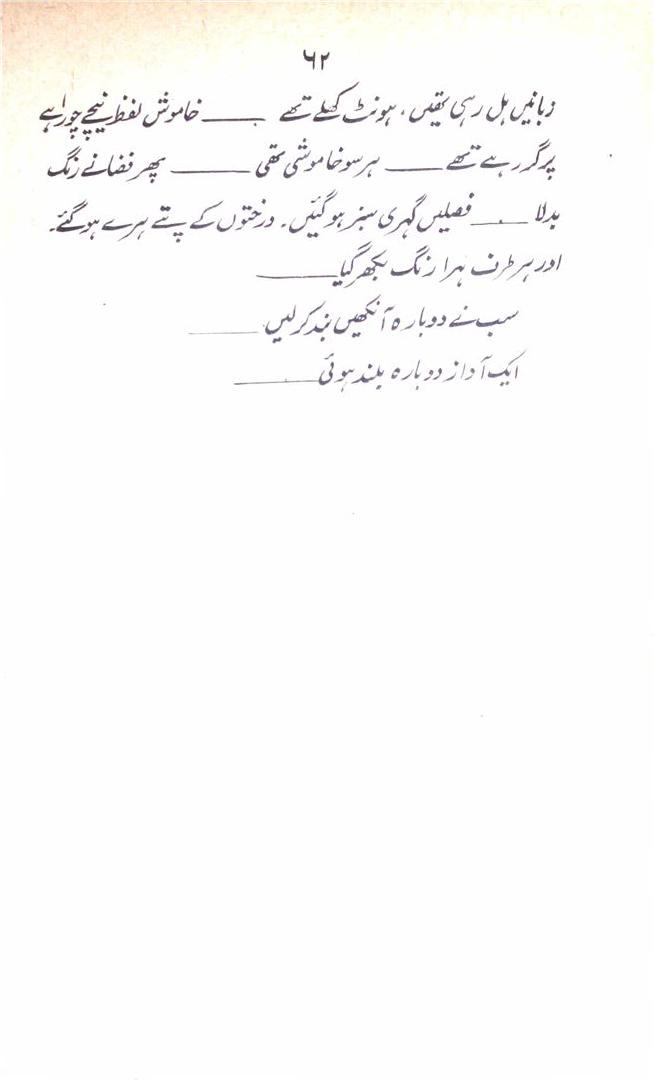 ۶۲
زبانیں ہل رہی تھیں، ہونٹ کھلے تھے ـــــ خاموش لفظ نیچے چوراہے
پر گر رہے تھے ـــــ ہر سو خاموشی تھی ـــــ پھر فضا نے رنگ
بدلا ـــــ فصلیں گہری سبز ہو گئیں۔ درختوں کے پتے ہرے ہو گئے۔
اور ہر طرف ہرا رنگ بکھر گیا ـــــ
سب نے دوبارہ آنکھیں بند کر لیں ـــــ
ایک آواز دوبارہ بلند ہوئی ـــــ